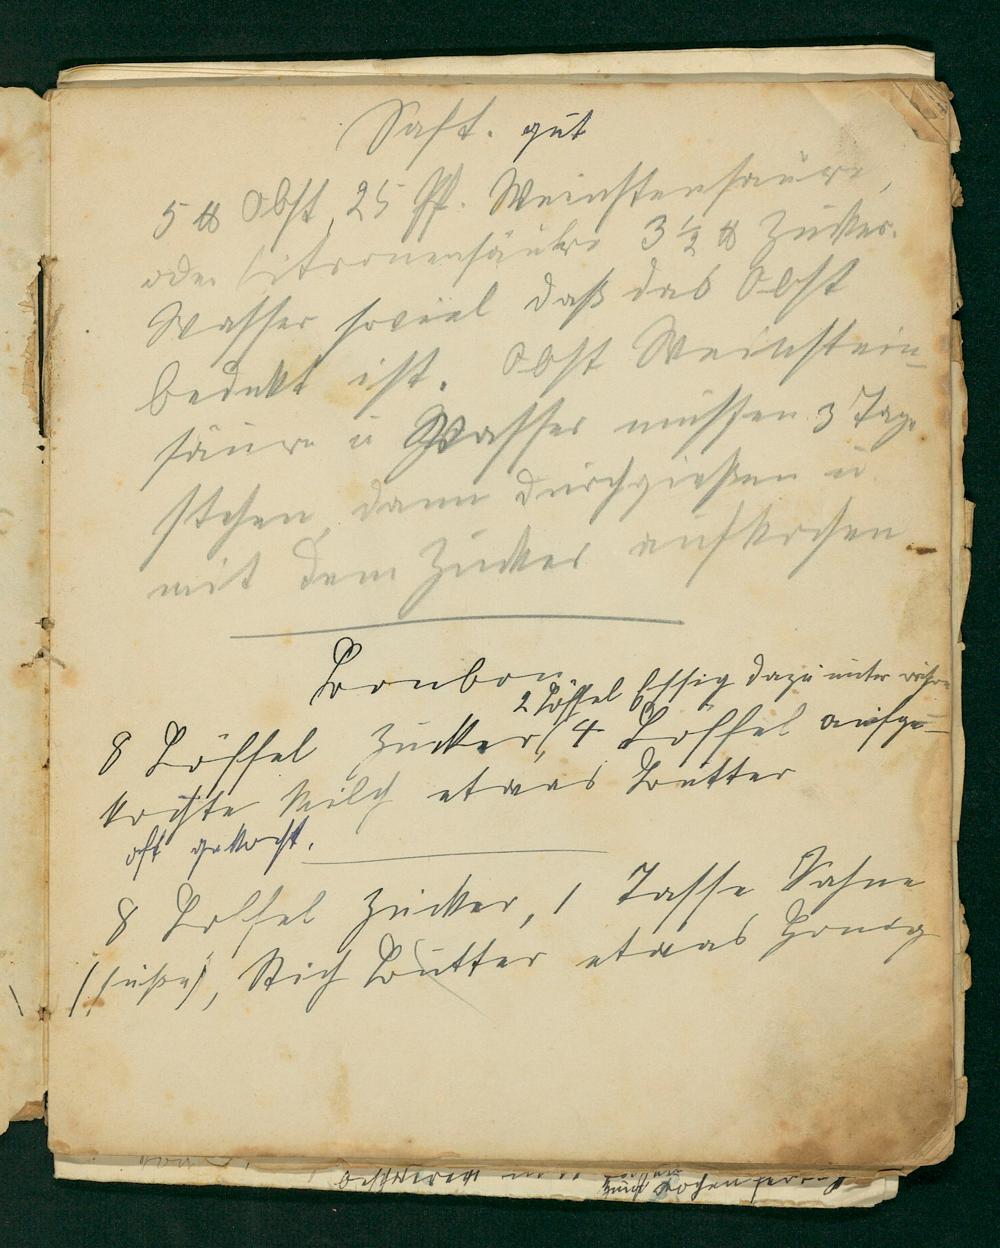 Saft. gut
5 ℔ Obst, 25 Pf. Weinstensäure,
oder Citronensäure 3 ½ ℔ Zucker.
Wasser soviel daß das Obst
bedekt ist. Obst Weinstein-
säure u Wasser müssen 3 Tage
stehen, dann durchgießen u
mit dem Zucker aufkochen
Bonbon
2 Löffel Essig dazu unter
8 Löffel Zucker, 4 Löffel aufge-
kochte Milch etwas Butter
oft gekocht.
8 Löffel Zucker, 1 Tasse Sahne
(süße), Stich Butter etwas Honig
kochen